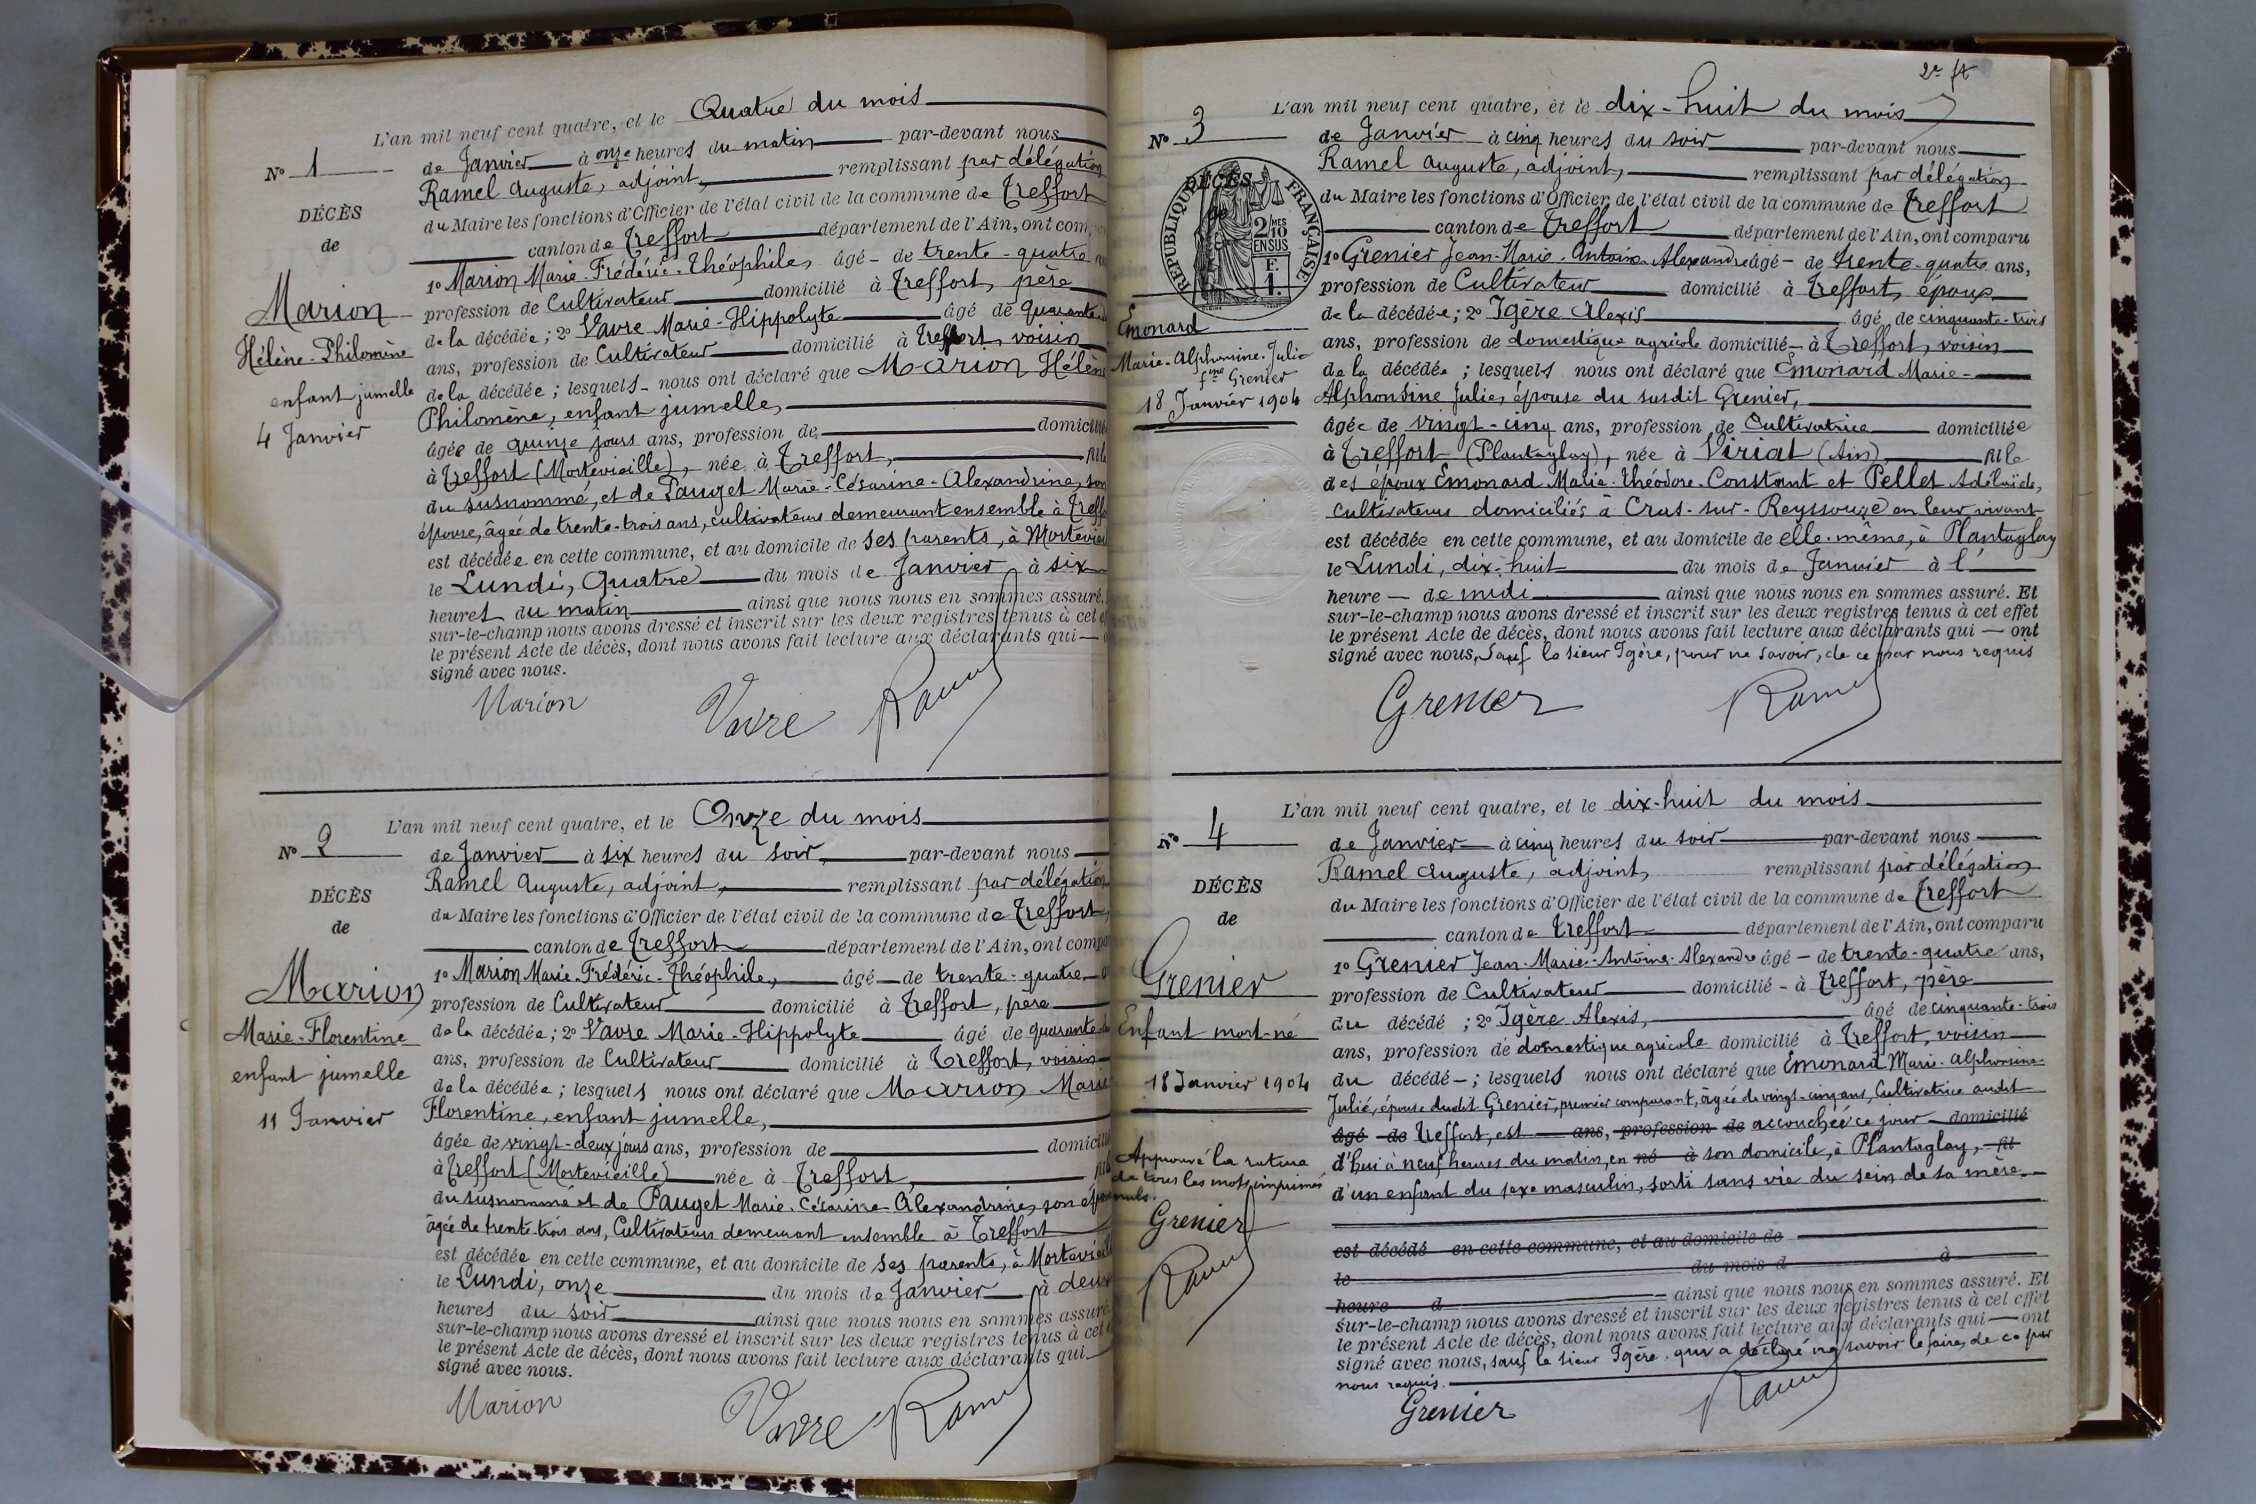 L'an mil neuf cent quatre, et le Quatre du mois
No 1
de Janvier à onze heures du matin par-devant nous
Ramel Auguste, adjoint, remplissant par délégation
DÉCÈS
du Maire les fonctions d'Officier de l'état civil de la commune de Treffort
de
canton de Treffort département de l'Ain, ont
1o Marion Marie-Frédéric-Théophile, âgé de trente-quatre
Marion
profession de Cultivateur domicilié à Treffort, père
Hélène-Philomène
de la décédée ; 2o Vavre Marie-Hippolyte âgé de
enfant jumelle
ans, profession de Cultivateur domicilié à Treffort, voisin
4 Janvier
de la décédée ; lesquels nous ont déclaré que Marion Hélène
Philomène, enfant jumelle,
âgée de quinze jours ans, profession de
à Treffort (Mortevieille), née à Treffort, fille
du susnommé, et de Pauget Marie-Césarine-Alexandrine, son
épouse, âgée de trente-trois ans, cultivateurs demeurant ensemble à
est décédée en cette commune, et au domicile de ses parents, à
le Lundi, Quatre du mois de Janvier à six
heures du matin ainsi que nous nous en sommes assuré.
sur-le-champ nous avons dressé et inscrit sur les deux registres tenus à cet
le présent Acte de décès, dont nous avons fait lecture aux déclarants qui
signé avec nous.
Marion Vavre Ramel
L'an mil neuf cent quatre, et le Onze du mois
No 2
de Janvier à six heures du soir, par-devant nous
Ramel Auguste, adjoint, remplissant par délégation
DÉCÈS
du Maire les fonctions d'Officier de l'état civil de la commune de Treffort,
de
canton de Treffort département de l'Ain, ont
1o Marion Marie-Frédéric-Théophile, âgé de trente-quatre
Marion
profession de Cultivateur domicilié à Treffort, père
Marie-Florentine
de la décédée ; 2o Vavre Marie-Hippolyte âgé de
enfant jumelle
ans, profession de Cultivateur domicilié à Treffort, voisin
de la décédée ; lesquels nous ont déclaré que Marion Marie
11 Janvier
Florentine, enfant jumelle,
âgée de vingt-deux jours ans, profession de
à Treffort (Mortevieille) née à Treffort,
du susnommé et de Pauget Marie-Césarine-Alexandrine, son
âgée de trente-trois ans, Cultivateurs demeurant ensemble à Treffort
est décédée en cette commune, et au domicile de ses parents, à
le Lundi, onze du mois de Janvier à deux
heures du soir ainsi que nous nous en sommes assuré.
sur-le-champ nous avons dressé et inscrit sur les deux registres tenus à cet
le présent Acte de décès, dont nous avons fait lecture aux déclarants qui
signé avec nous.
Marion Vavre Ramel
L'an mil neuf cent quatre, et le dix-huit du mois
No 3
de Janvier à cinq heures du soir par-devant nous
Ramel Auguste, adjoint, remplissant par délégation
DÉCÈS
de
RÉPUBLIQUE FRANÇAISE
2/10 MES
EN SUS
F.
1.
du Maire les fonctions d'Officier de l'état civil de la commune de Treffort
canton de Treffort département de l'Ain, ont comparu
1o Grenier Jean-Marie-Antoine-Alexandre âgé de trente-quatre ans,
profession de Cultivateur domicilié à Treffort, époux
Emonard
de la décédée ; 2o Igère Alexis âgé de cinquante-trois
ans, profession de domestique agricole domicilié à Treffort, voisin
Marie-Alphonsine-Julie
fme Grenier
de la décédée ; lesquels nous ont déclaré que Emonard Marie-
18 Janvier 1904
Alphonsine Julie, épouse du susdit Grenier,
âgée de vingt-cinq ans, profession de Cultivatrice domiciliée
à Treffort (Plantaglay), née à Viriat (Ain) fille
des époux Emonard Marie-Théodore-Constant et Pellet Adélaïde,
cultivateurs domiciliés à Cras-sur-Reyssouze en leur vivant
est décédée en cette commune, et au domicile de elle-même, à Plantaglay
le Lundi, dix-huit du mois de Janvier à l'
heure de midi ainsi que nous nous en sommes assuré. Et
sur-le-champ nous avons dressé et inscrit sur les deux registres tenus à cet effet
le présent Acte de décès, dont nous avons fait lecture aux déclarants qui ont
signé avec nous, Sauf le sieur Igère, pour ne savoir, de ce par nous requis
Grenier Ramel
L'an mil neuf cent quatre, et le dix-huit du mois
No 4
de Janvier à cinq heures du soir par-devant nous
Ramel Auguste, adjoint, remplissant par délégation
DÉCÈS
du Maire les fonctions d'Officier de l'état civil de la commune de Treffort
de
canton de Treffort département de l'Ain, ont comparu
1o Grenier Jean-Marie-Antoine-Alexandre âgé de trente-quatre ans,
Grenier
profession de Cultivateur domicilié à Treffort, père
du décédé ; 2o Igère Alexis, âgé de cinquante-trois
Enfant mort-né
ans, profession de domestique agricole domicilié à Treffort, voisin
18 Janvier 1904
du décédé ; lesquels nous ont déclaré que Emonard Marie-Alphonsine-
Julie, épouse dudit Grenier, premier comparant, âgée de vingt-cinq ans, Cultivatrice audit
âgé de Treffort, est ans, profession de accouchée ce jour domicilié
Approuvé la rature
de tous les mots imprimés
nuls.
Grenier
Ramel
d'hui à neuf heures du matin, en né à son domicile, à Plantaglay, fil
d'un enfant du sexe masculin, sorti sans vie du sein de sa mère.
est décédé en cette commune, et au domicile de
le du mois d à
heure d ainsi que nous nous en sommes assuré. Et
sur-le-champ nous avons dressé et inscrit sur les deux registres tenus à cet effet
le présent Acte de décès, dont nous avons fait lecture aux déclarants qui ont
signé avec nous, sauf le sieur Igère qui a déclaré ne savoir le faire, de ce par
nous requis.
Grenier Ramel